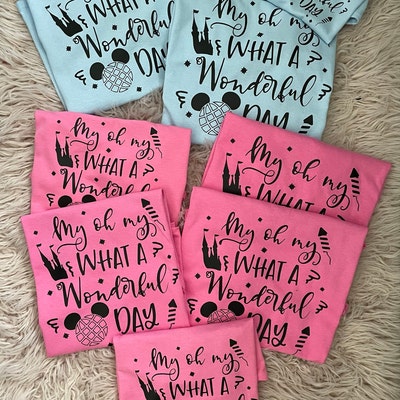 WHAT A
Wonderful
DAY
My oh my
WHAT A
Wonderful
DAY
My oh my
WHAT A
Wonderful
My oh my
WHAT A
My oh my
WHAT A
Wonderful
DAY
My oh my
WHAT A
Wonderful
DAY
My oh my
WHAT A